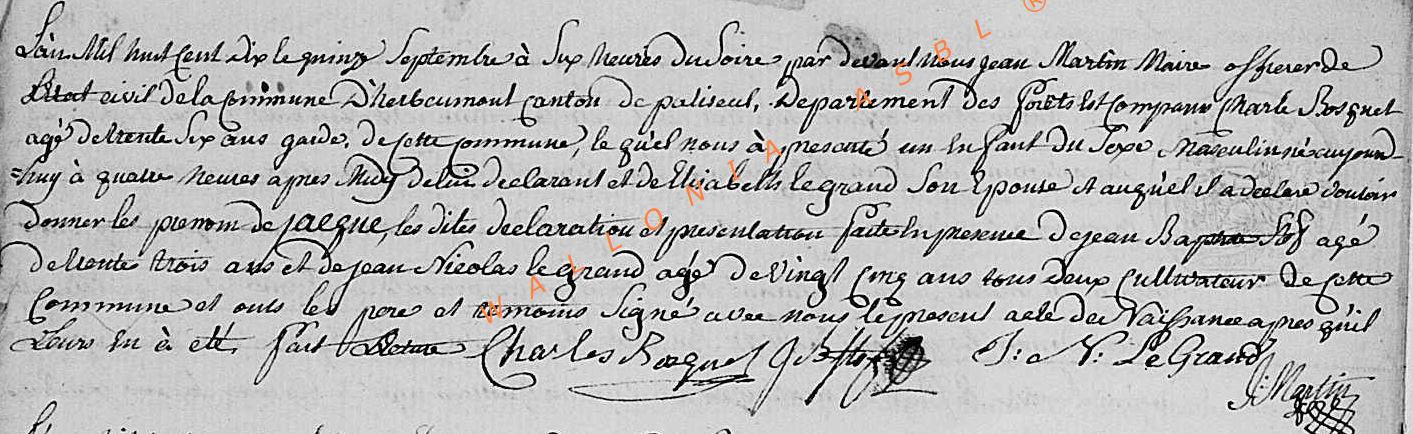 L'àn Mil huit Cent dix le quinze Septembre à Six heures du Soire par devant nous jean Martin Maire officier de
L'Etat civil de la Commune D'herbeumont Canton de paliseul, Departement des forêts Est Comparu Charle Bosquet
agé de trente Six ans garde, de Cette Commune, le quel nous à presenté un Enfant du Sexe Masculin né aujourd
=huy à quatre heures apres Midy de lui declarant et de Elisabeth le grand Son Epouse et auquel il a declaré Vouloir
donner les prenom de jacque, les dites declaration et presentation faite En presence de jean Baptiste agé
de trente trois ans et de jean Nicolas le grand agé de Vingt Cinq ans tous deux Cultivateur de Cette
Commune et onts les pere et temoins Signé avec nous le present acte de Naissance apres qu'il
Leurs En à eté fait Lecture Charles Bosquet J: N: LeGrand
J: Martin
WALLONIA ASBL ®